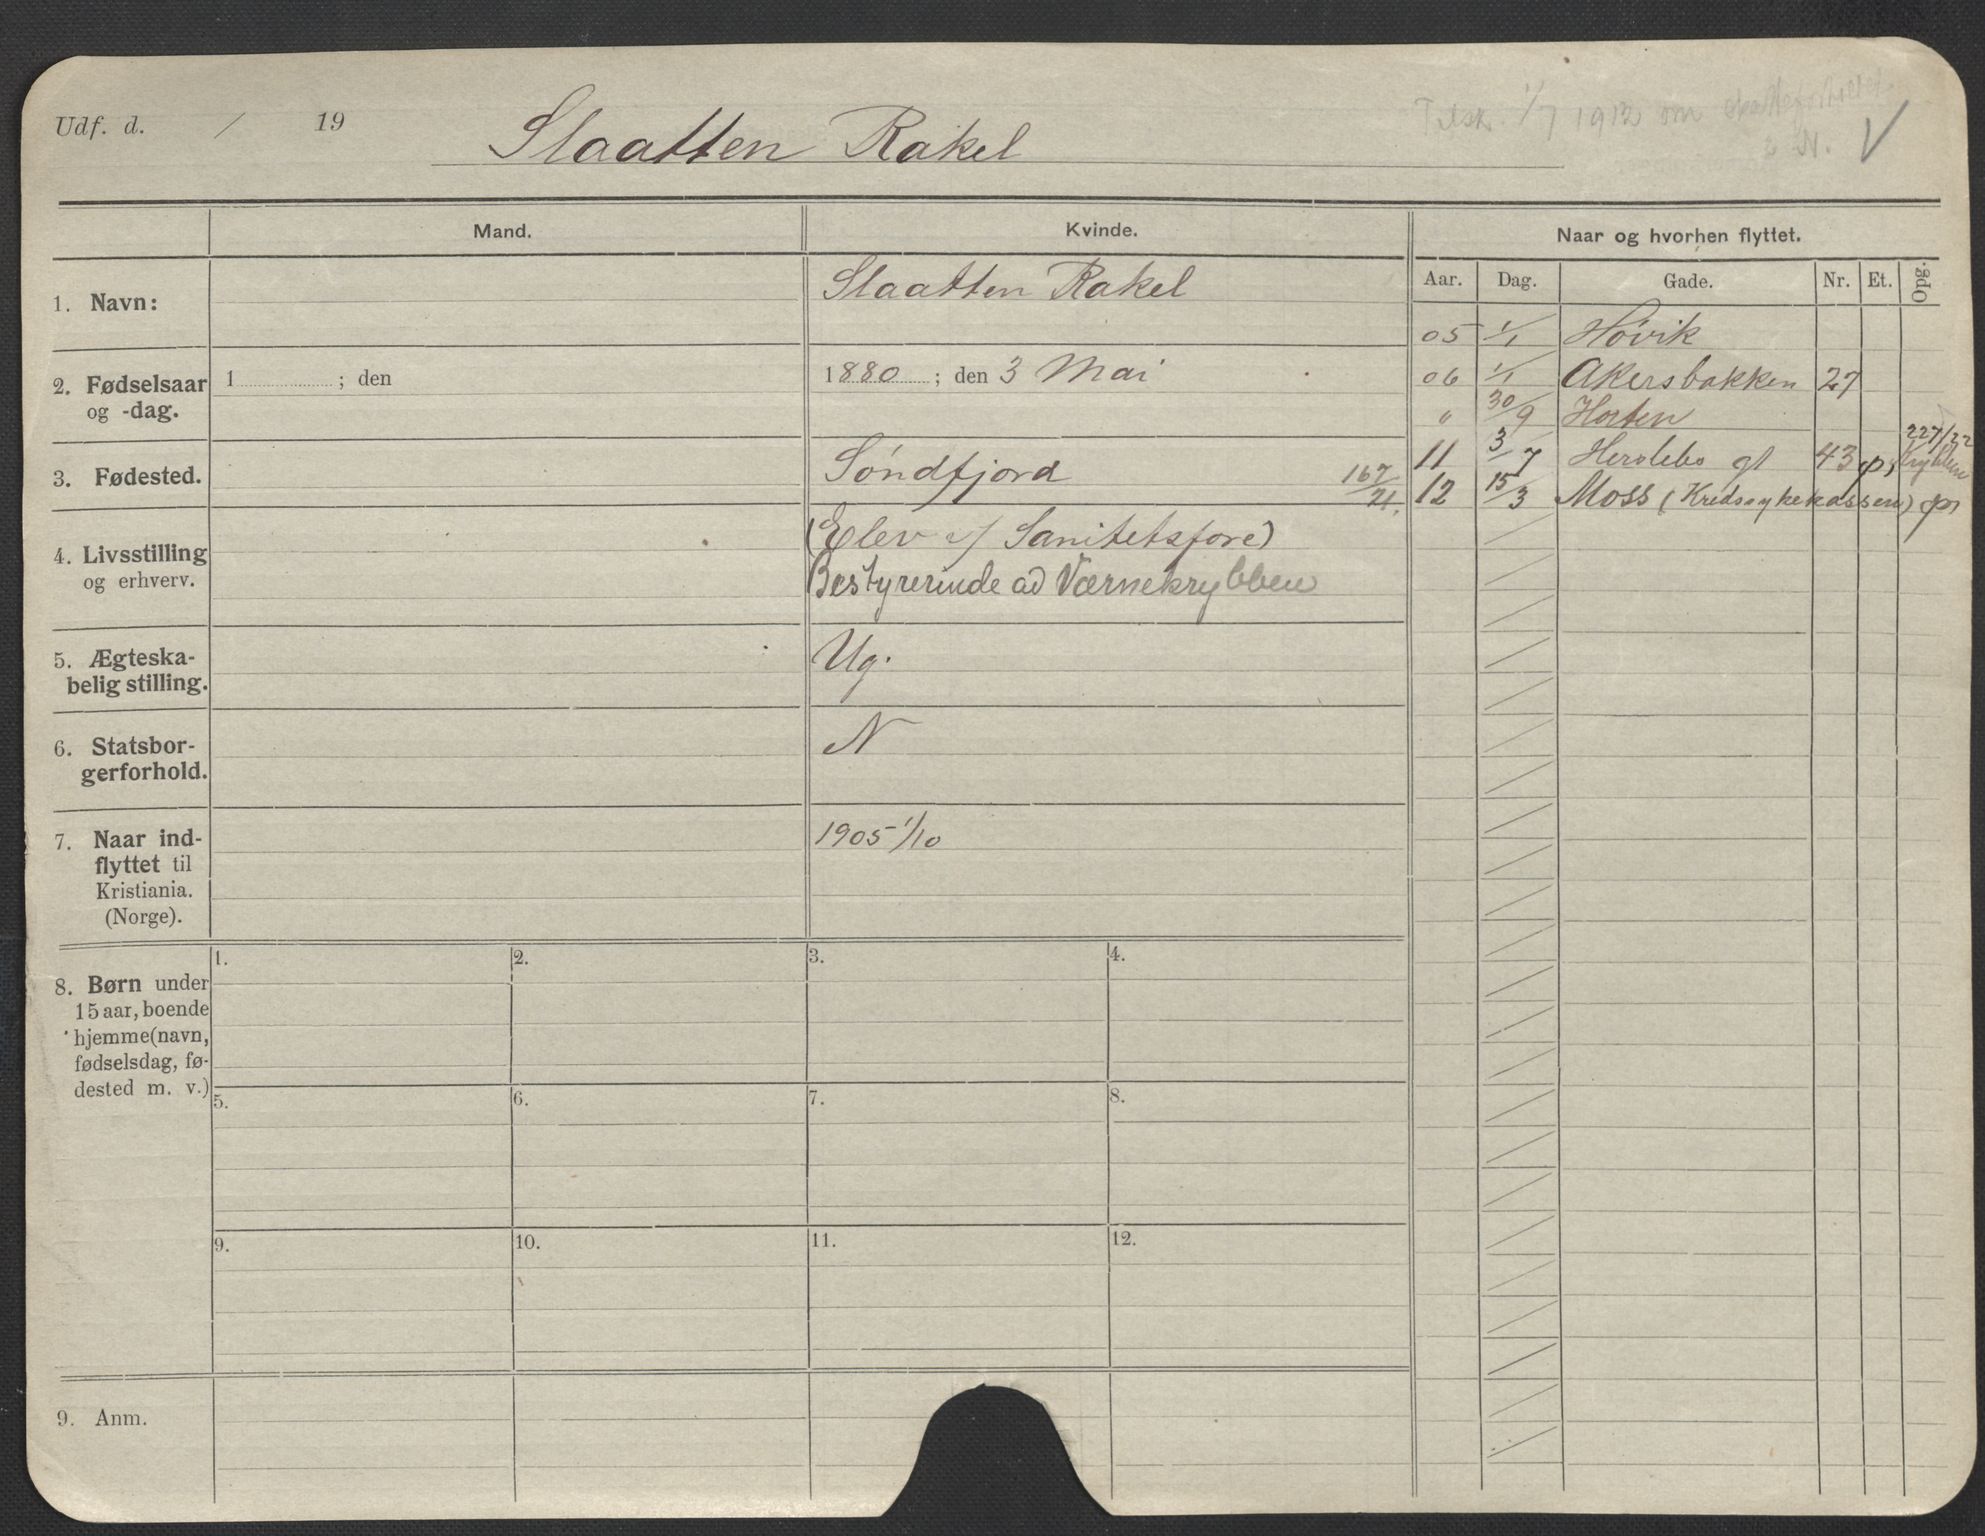 Udf. d. / 19
Slaatten Rakel
Tilsk. 1/7 1912 om
N. V
Mand.
Kvinde.
Naar og hvorhen flyttet.
Aar. Dag. Gade. Nr. Et. Opg.
1. Navn:
Slaatten Rakel
05 1/1 Høvik
2. Fødselsaar
og -dag.
1 ; den
1880 ; den 3 Mai
06 1/1 Akersbakken 27
" 30/9 Horten
3. Fødested.
Søndfjord
167/21.
11 3/7 Herslebs gt 43 ps 227/22 Krybben
12 15/3 Moss (Kredssykekassen) ps
4. Livsstilling
og erhverv.
(Elev v/ Sanitetsfore)
Bestyrerinde ad Værnekrybben
5. Ægteska-
belig stilling.
Ug.
6. Statsbor-
gerforhold.
N
7. Naar ind-
flyttet til
Kristiania.
(Norge).
1905 1/10
8. Børn under
15 aar, boende
hjemme (navn,
fødselsdag, fø-
dested m. v.)
1. 2. 3. 4.
5. 6. 7. 8.
9. 10. 11. 12.
9. Anm.